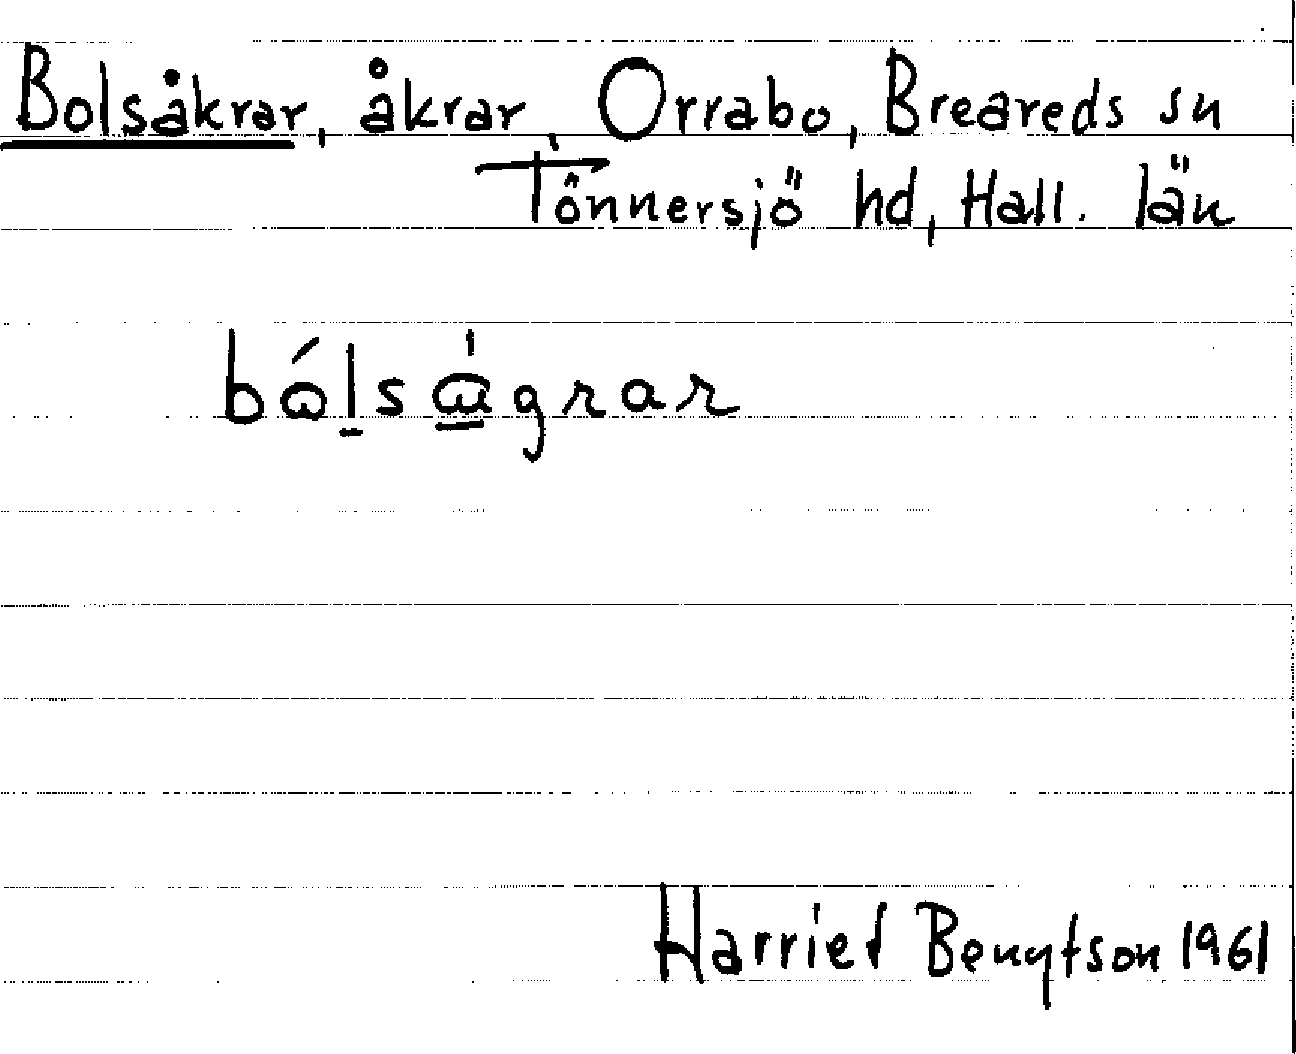 Bolsåkrar, åkrar, Orrabo, Breareds sn
Tönnersjö hd, Hall. län
Harriet Bengtson 1961